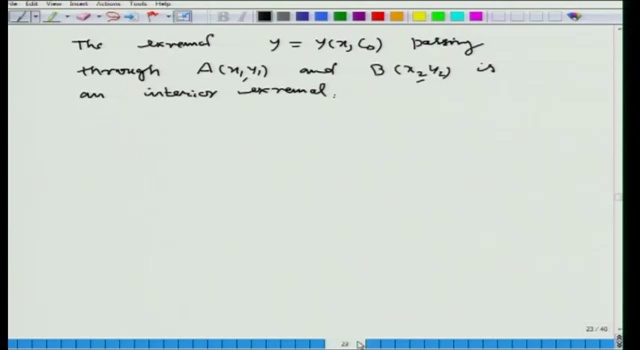 File Edit View Insert Actions Tools Help
The extremal y = y(x, C₀) passing
through A(x₁, y₁) and B(x₂, y₂) is
an interior extremal.
23 / 40
23